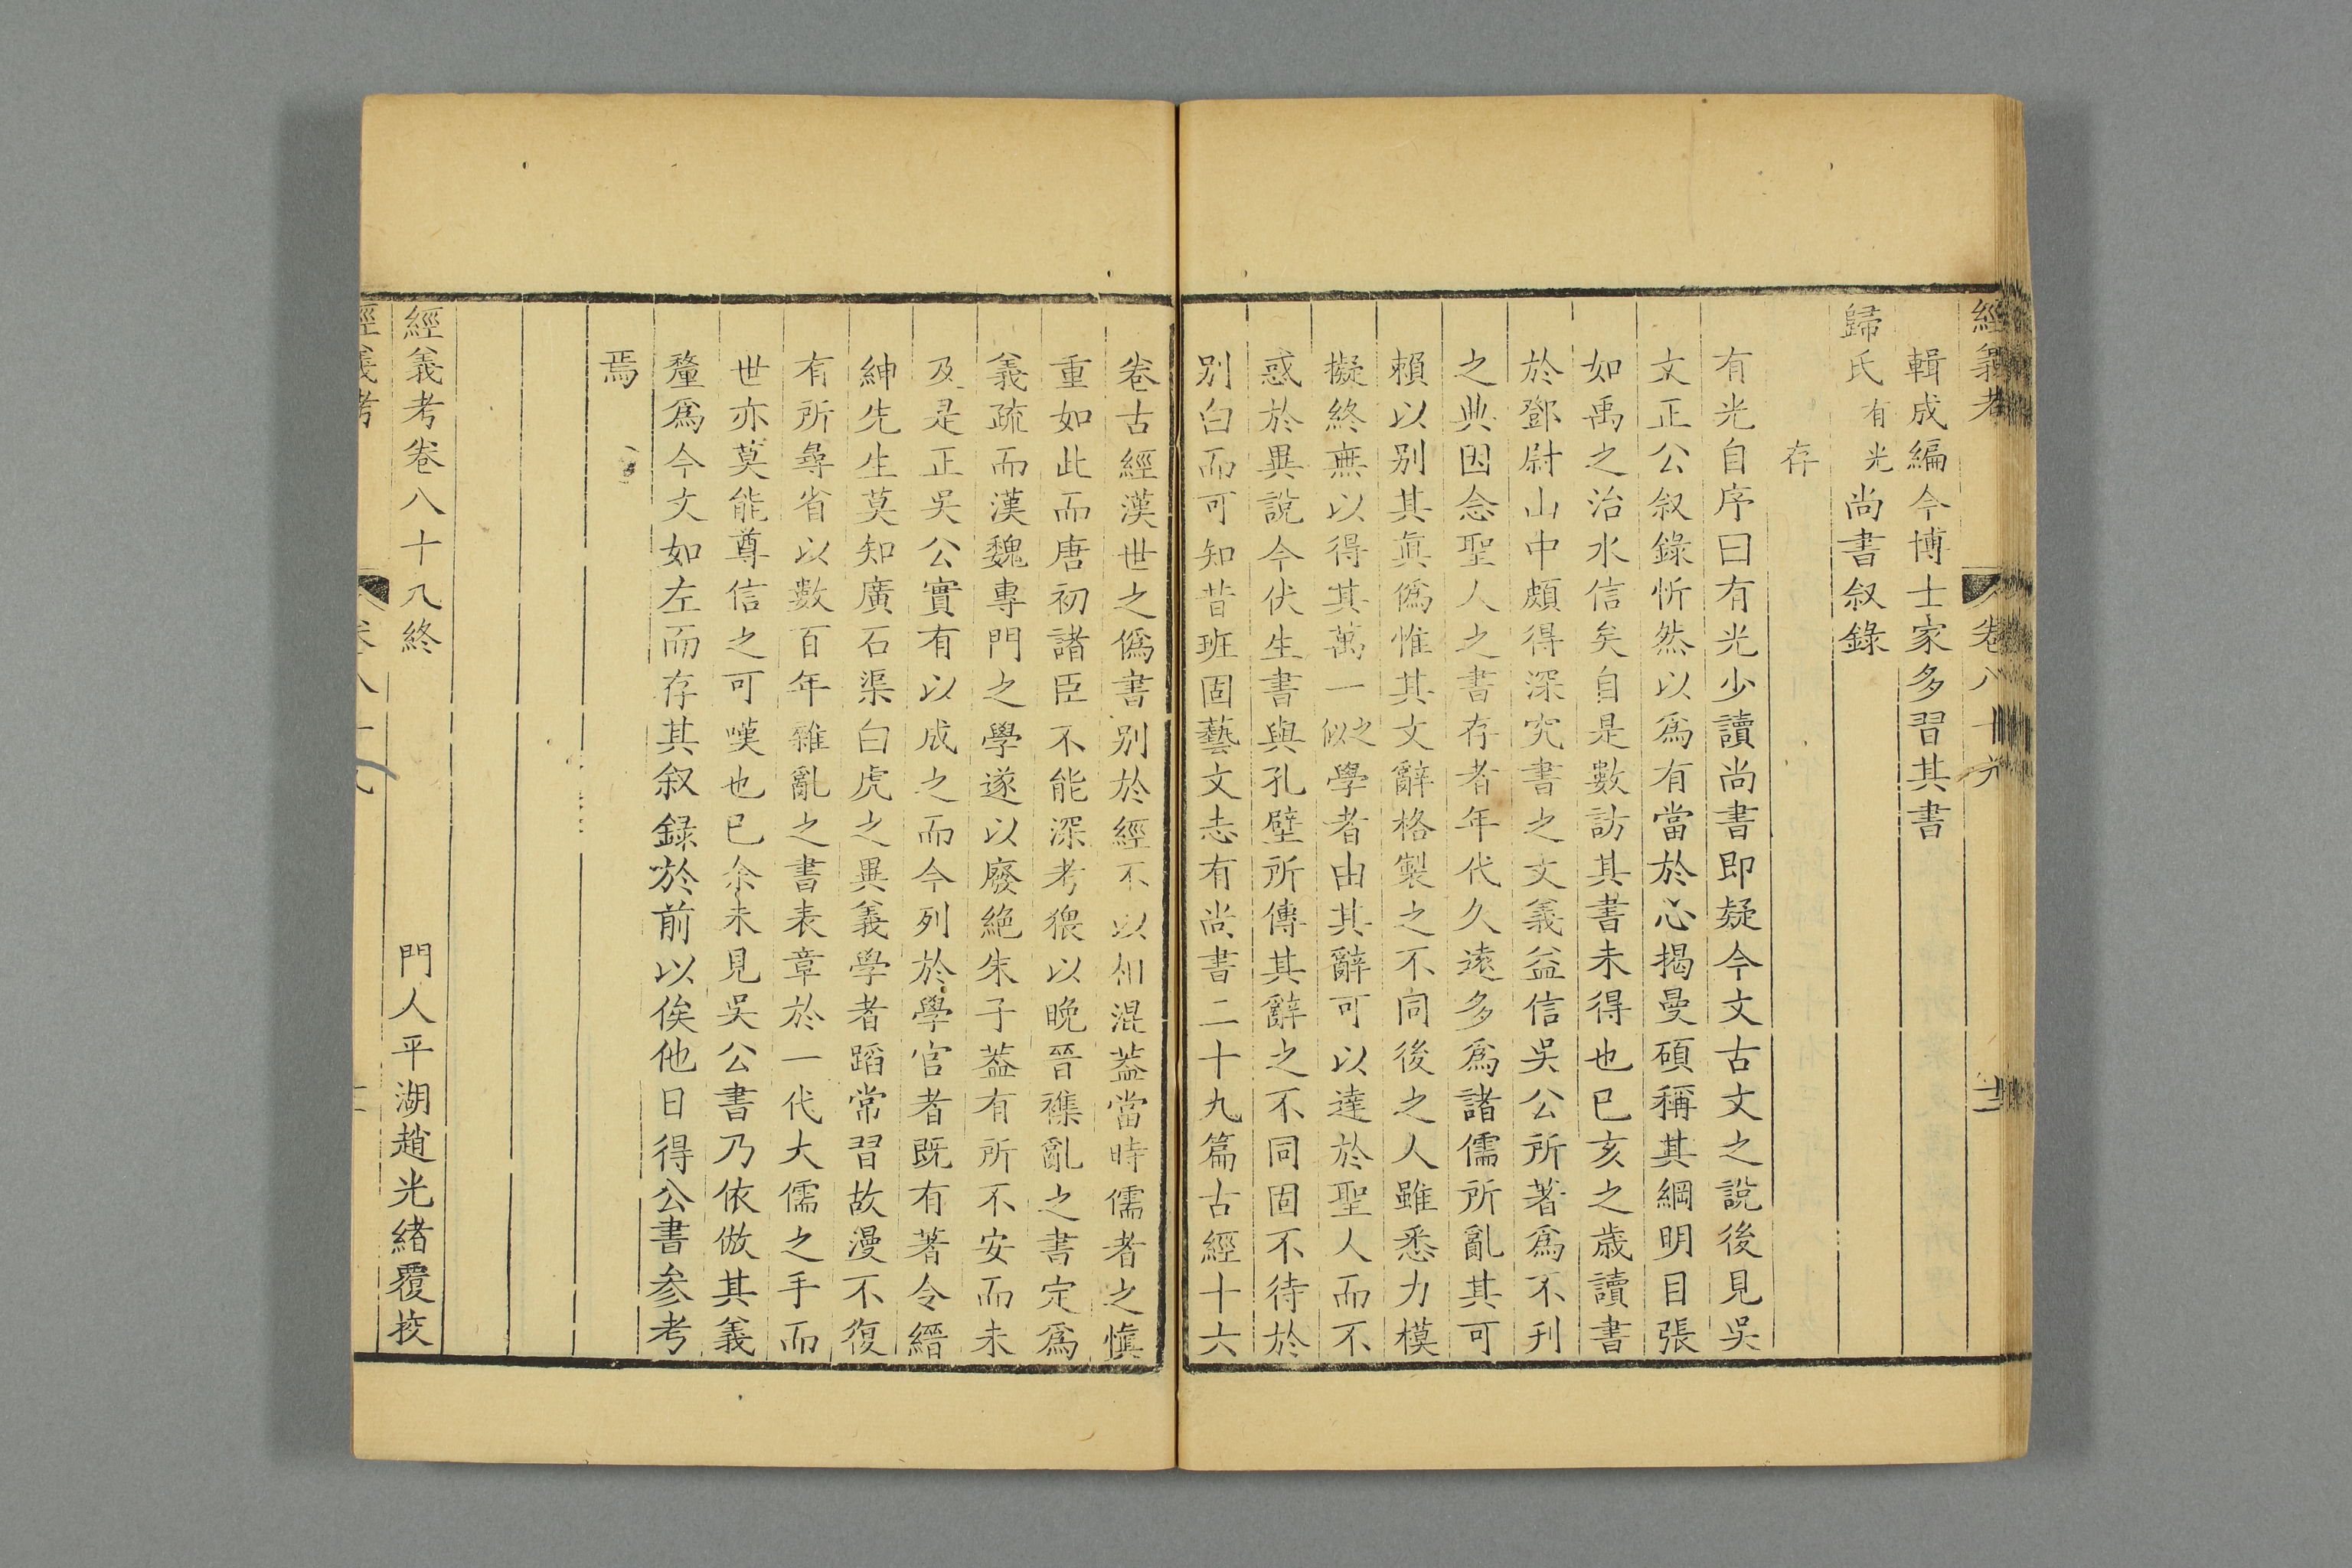 經義考
卷八十
輯成編今博士家多習其書
歸氏有光尚書叙錄
存
有光自序曰有光少讀尚書即疑今文古文之說後見吳
文正公叙錄忻然以爲有當於心揭曼碩稱其綱明目張
如禹之治水信矣自是數訪其書未得也已亥之歳讀書
於鄧尉山中頗得深究書之文義益信吳公所著爲不刋
之典因念聖人之書存者年代久遠多爲諸儒所亂其可
賴以别其眞僞惟其文辭格製之不同後之人雖悉力模
擬終無以得其萬一之似學者由其辭可以達於聖人而不
惑於異說今伏生書與孔壁所傳其辭之不同固不待於
别白而可知昔班固藝文志有尚書二十九篇古經十六
卷古經漢世之僞書别於經不以相混葢當時儒者之愼
重如此而唐初諸臣不能深考猥以晚晉襍亂之書定爲
義疏而漢魏專門之學遂以廢絶朱子葢有所不安而未
及是正吳公實有以成之而今列於學官者既有著令縉
紳先生莫知廣石渠白虎之異義學者蹈常習故漫不復
有所尋省以數百年雜亂之書表章於一代大儒之手而
世亦莫能尊信之可嘆也已余未見吳公書乃依倣其義
釐爲今文如左而存其叙録於前以俟他日得公書參考
焉
經義考卷八十八終
門人平湖趙光緒覆挍
經義考
卷八十